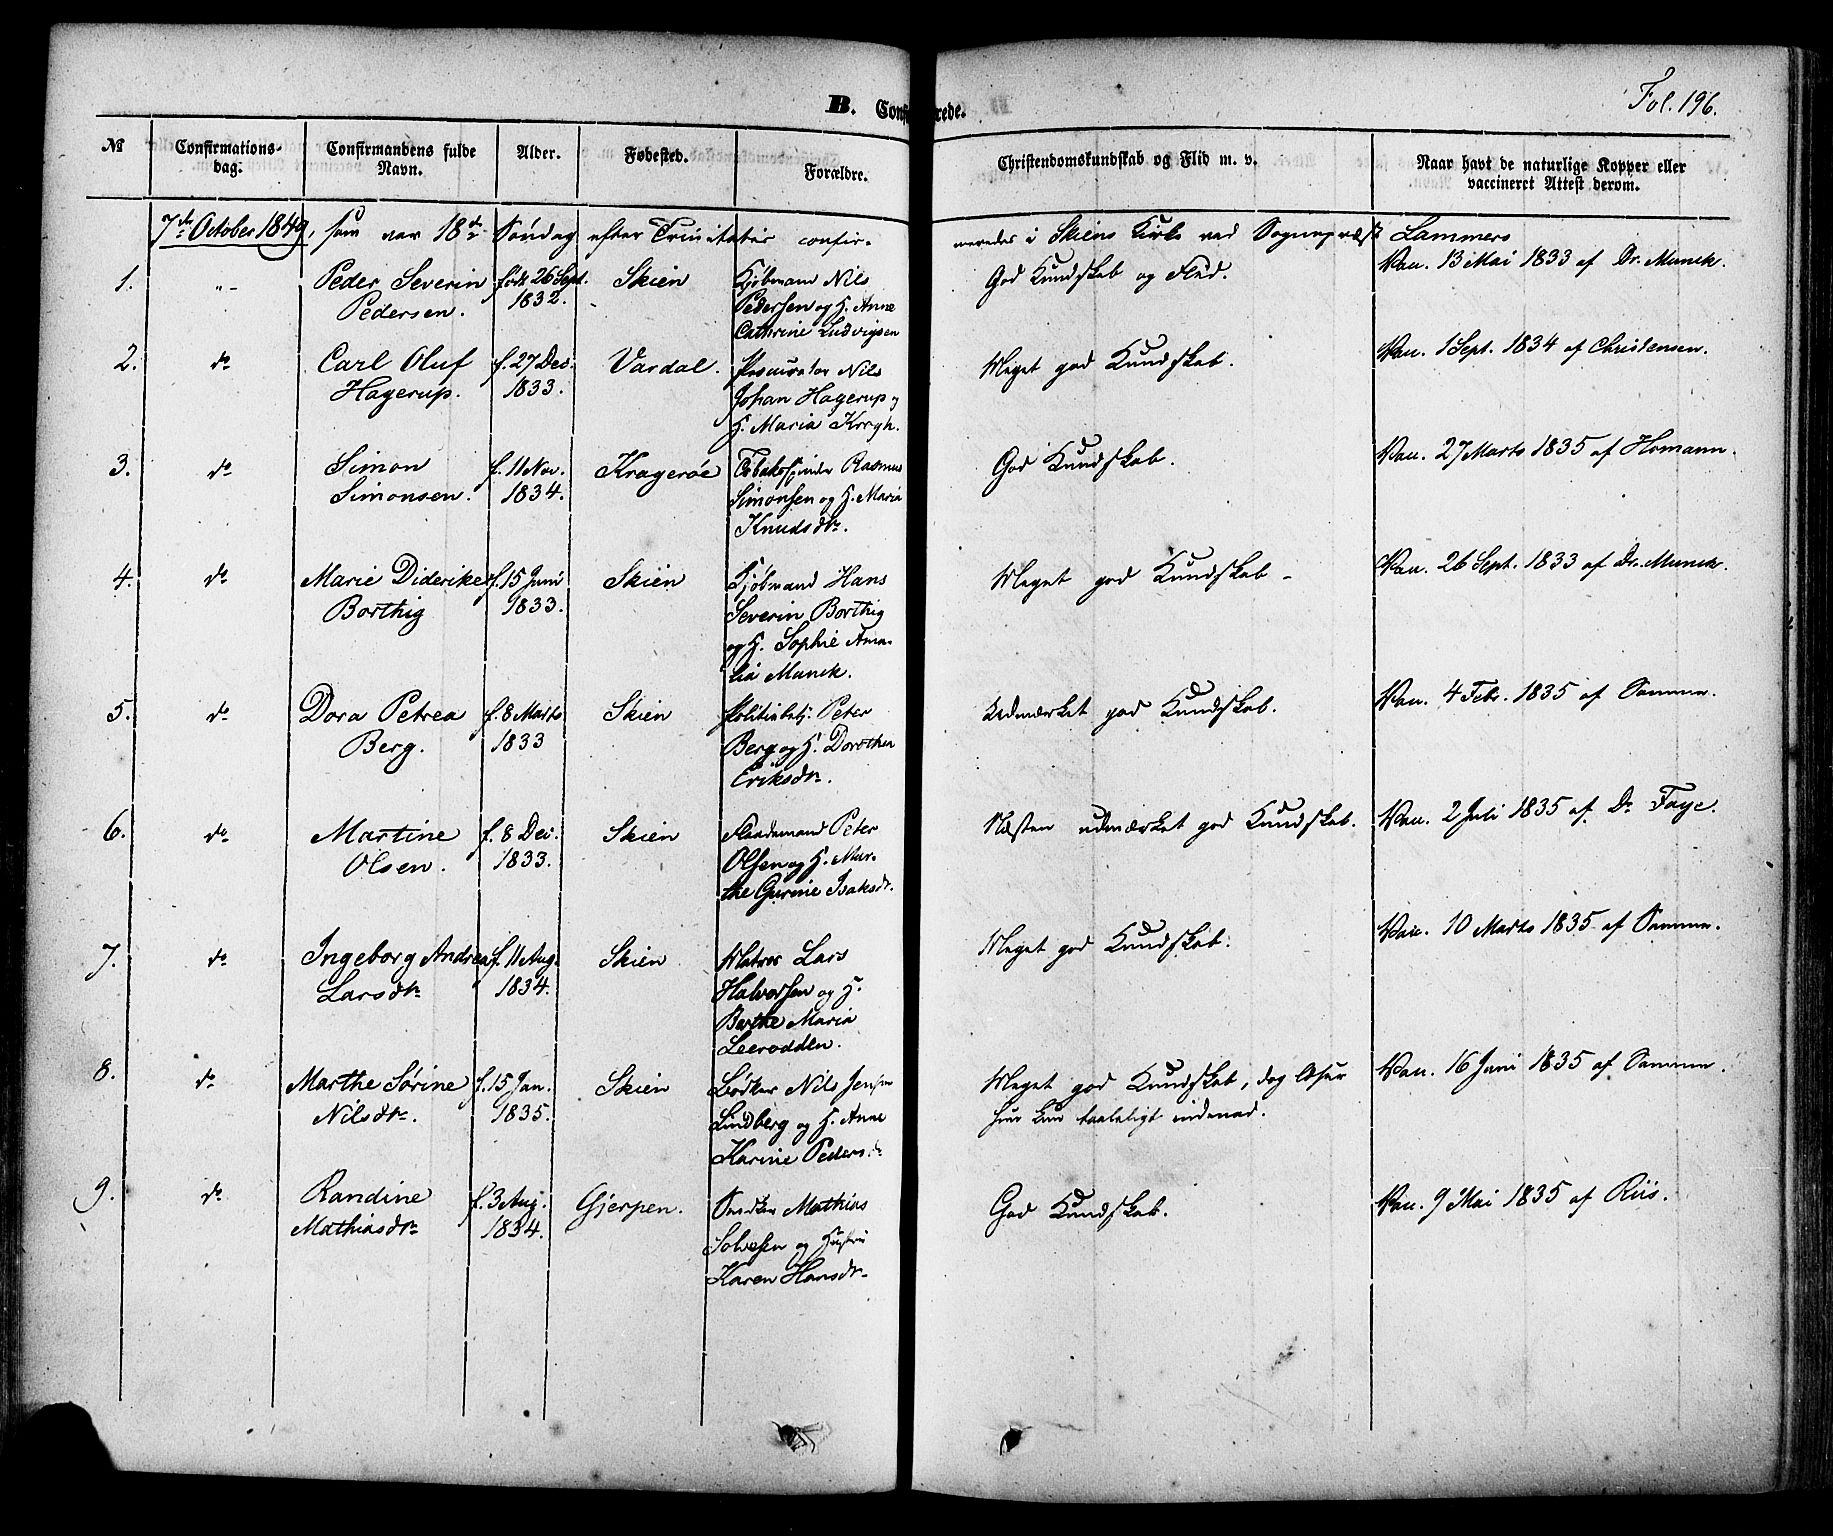 B. Conf rede.
Fol. 196.
№
Confirmations-
dag.
Confirmandens fulde
Navn.
Alder.
Fødested.
Forældre.
Christendomskundskab og Flid m. v.
Naar havt de naturlige Kopper eller
vaccineret Attest derom.
7de October 1849, som var 18de Søndag efter Trinitatis confir-
meredes i Skiens Kirke ved Sognepræst Lammers
1.
" –
Peder Severin
Pedersen.
født 26 Sept.
1832.
Skien
Kjøbmand Nils
Pedersen og H. Anne
Cathrine Ludvigsen
God Kundskab og Flid.
Vac. 13 Mai 1833 af Dr. Munck.
2.
do
Carl Oluf
Hagerup.
f. 27 Dec.
1833.
Vardal.
Procurator Nils
Johan Hagerup og
H. Maria Krogh.
Meget god Kundskab.
Vac. 1 Sept. 1834 af Christensen.
3.
do
Simon
Simonsen.
f. 11 Nov.
1834.
Kragerøe
Tobakspinder Rasmus
Simonsen og H. Maria
Knudsdtr.
God Kundskab.
Vac. 27 Marts 1835 af Homann.
4.
do
Marie Diderikke
Borthig
f. 15 Juni
1833.
Skien
Kjøbmand Hans
Severin Borthig
og H. Sophie Ama-
lia Munck.
Meget god Kundskab –
Vac. 26 Sept. 1833 af Dr. Munck.
5.
do
Dora Petrea
Berg.
f. 8 Marts
1833
Skien
Politibetj. Peter
Berg og H. Dorothea
Eriksdtr.
Udmærket god Kundskab.
Vac. 4 Febr. 1835 af Samme.
6.
do
Martine
Olsen.
f. 8 Dec.
1833.
Skien
Peter
Olsen og H. Mar-
the Gurine Isaksdr.
Næsten udmærket god Kundskab.
Vac. 2 Juli 1835 af Dr Faye.
7.
do
Ingeborg Andrea
Larsdtr
f. 11 Aug.
1834.
Skien
Matros Lars
Halvorsen og H.
Berthe Maria
Leerodden.
Meget god Kundskab.
Vac. 10 Marts 1835 af Samme.
8.
do
Marthe Sørine
Nilsdtr.
f. 15 Jan.
1835.
Skien
Bødker Nils Jensen
Lindberg og H. Anne
Karine Pedersdr
Meget god Kundskab, dog læser
hun kun taaleligt indenad.
Vac. 16 Juni 1835 af Samme.
9.
do
Randine
Mathiasdtr
f. 3 Aug.
1834.
Gjerpen.
Snedker Mathias
Solvesen og Hustru
Karen Hansdtr
God Kundskab.
Vac. 9 Mai 1835 af Riis.